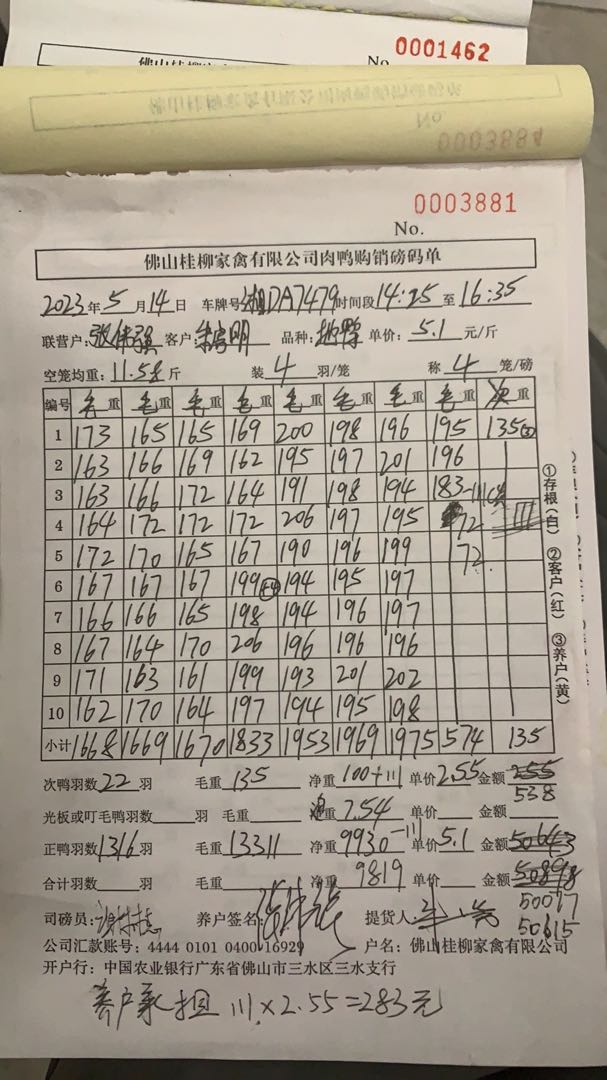 No. 0001462
No.
0003884
0003881
No.
佛山桂柳家禽有限公司肉鸭购销磅码单
2023年5月14日 车牌号湘DA7479时间段14:25至16:35
联营户:张伟强 客户: 明 品种: 单价:5.1元/斤
空笼均重:11.58斤 装4羽/笼 称4笼/磅
编号 毛重 毛重 毛重 毛重 毛重 毛重 毛重 毛重 次重
1 173 165 165 169 200 198 196 195 135
2 163 166 169 162 195 197 201 196
3 163 166 172 164 191 198 194 183
4 164 172 172 172 206 197 195 72
5 172 170 165 167 190 196 199 72
6 167 167 167 199 194 195 197
7 166 166 165 198 194 196 197
8 167 164 170 206 196 196 196
9 171 163 161 199 193 201 202
10 162 170 164 197 194 195 198
小计 1668 1669 1670 1833 1953 1969 1975 574 135
①存根(白) ②客户(红) ③养户(黄)
次鸭羽数22羽 毛重135 净重100+111 单价2.55 金额255
538
光板或叮毛鸭羽数 羽 毛重 净重7.54 单价 金额
正鸭羽数1316羽 毛重13311 净重9930-111 单价5.1 金额50643
合计羽数 羽 毛重 净重9819 单价 金额50898
50077
50615
司磅员: 养户签名: 提货人:
公司汇款账号:4444 0101 0400 16929 户名:佛山桂柳家禽有限公司
开户行:中国农业银行广东省佛山市三水区三水支行
养户承担 111×2.55=283元